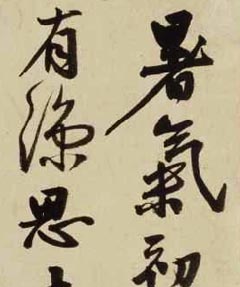 暑氣初
有涼思